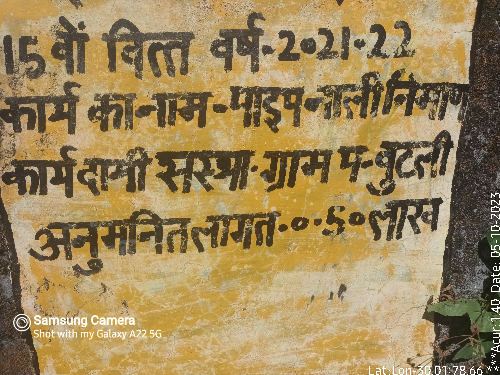 15 वाँ वित्त वर्ष-2021-22
कार्य का-नाम-पाइप-नाली निमाण
कार्य दायी संस्था-ग्राम प-वुटली
अनुमनित लागत-०-5० लाख
Samsung Camera
Shot with my Galaxy A22 5G
Date: 05-10-2023